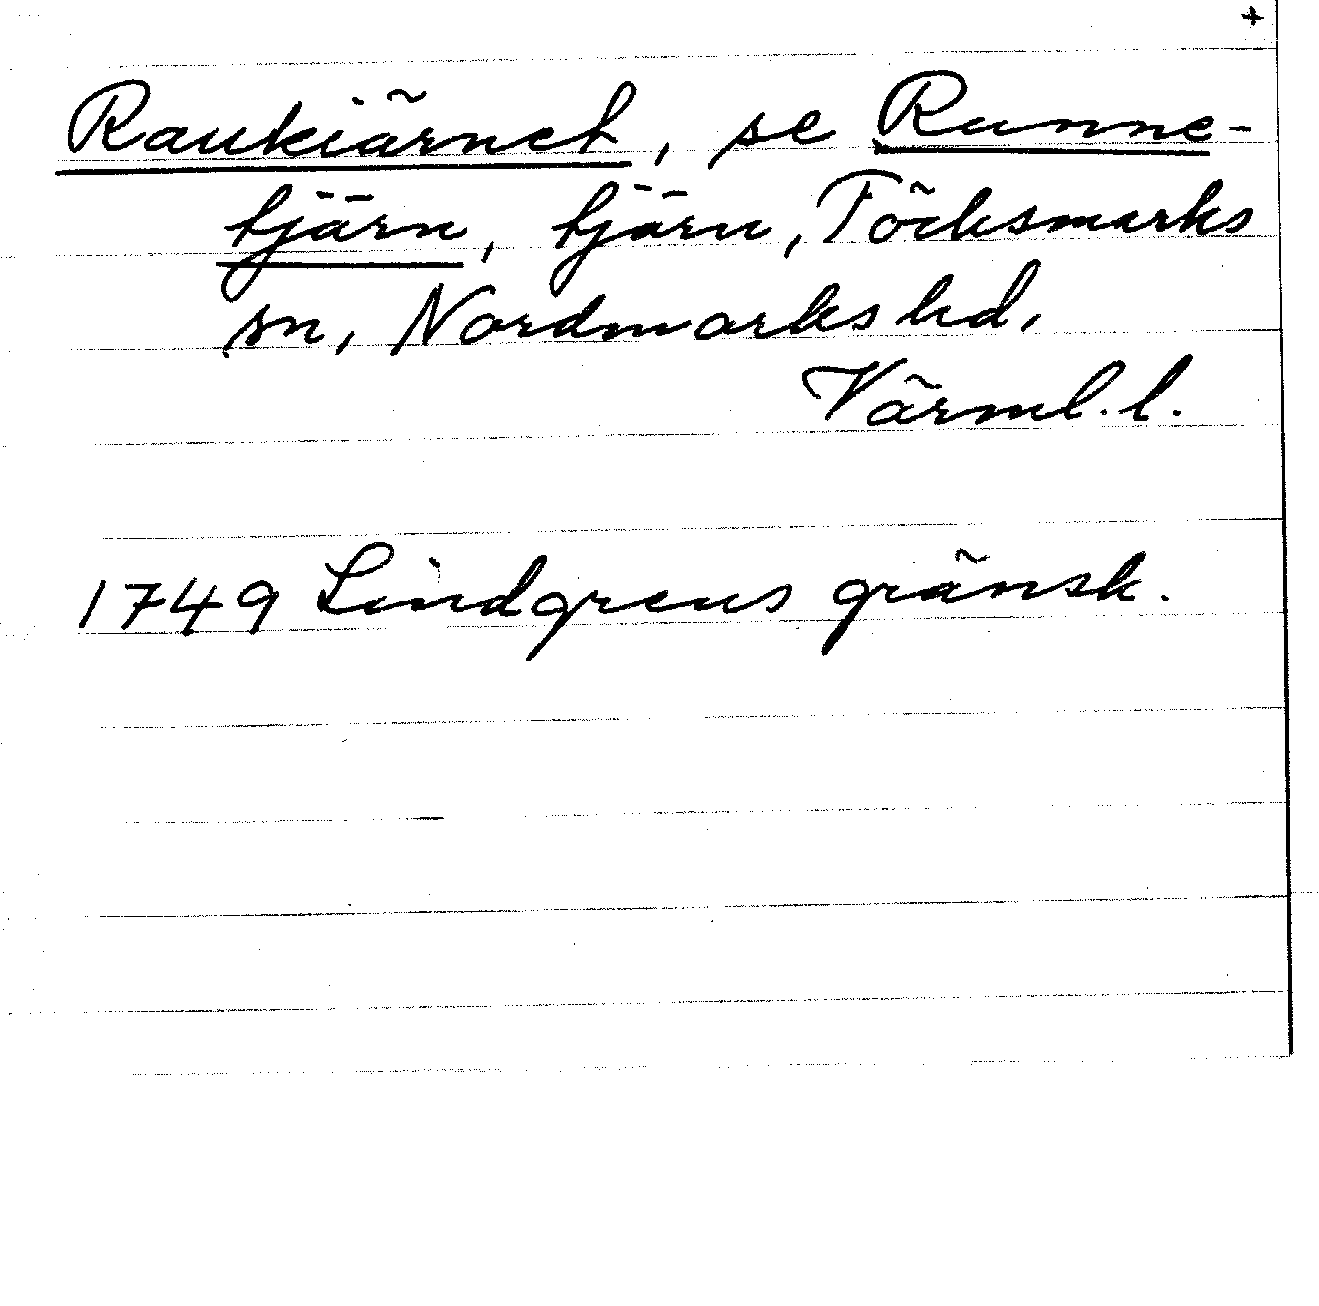 +
Raukiärnet, se Runne-
tjärn, tjärn, Töcksmarks
sn, Nordmarks hd,
Värml. l.
1749 Lindgrens gränsk.